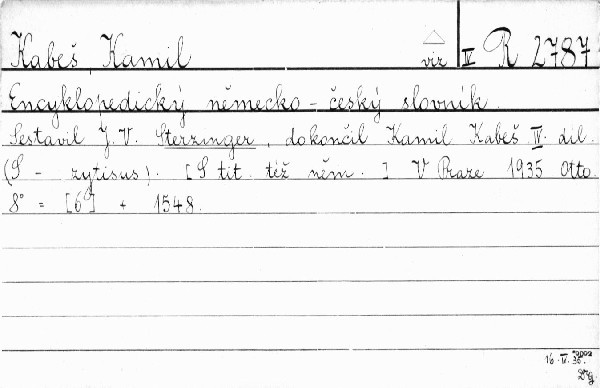 Kabeš Kamil viz IV R 2787
Encyklopedický německo-český slovník
Sestavil J. V. Sterzinger, dokončil Kamil Kabeš. IV. díl.
(S - zytisus). [S tit. též něm.] V Praze 1935 Otto.
8° = [6] + 1548.
16. IV. 36.